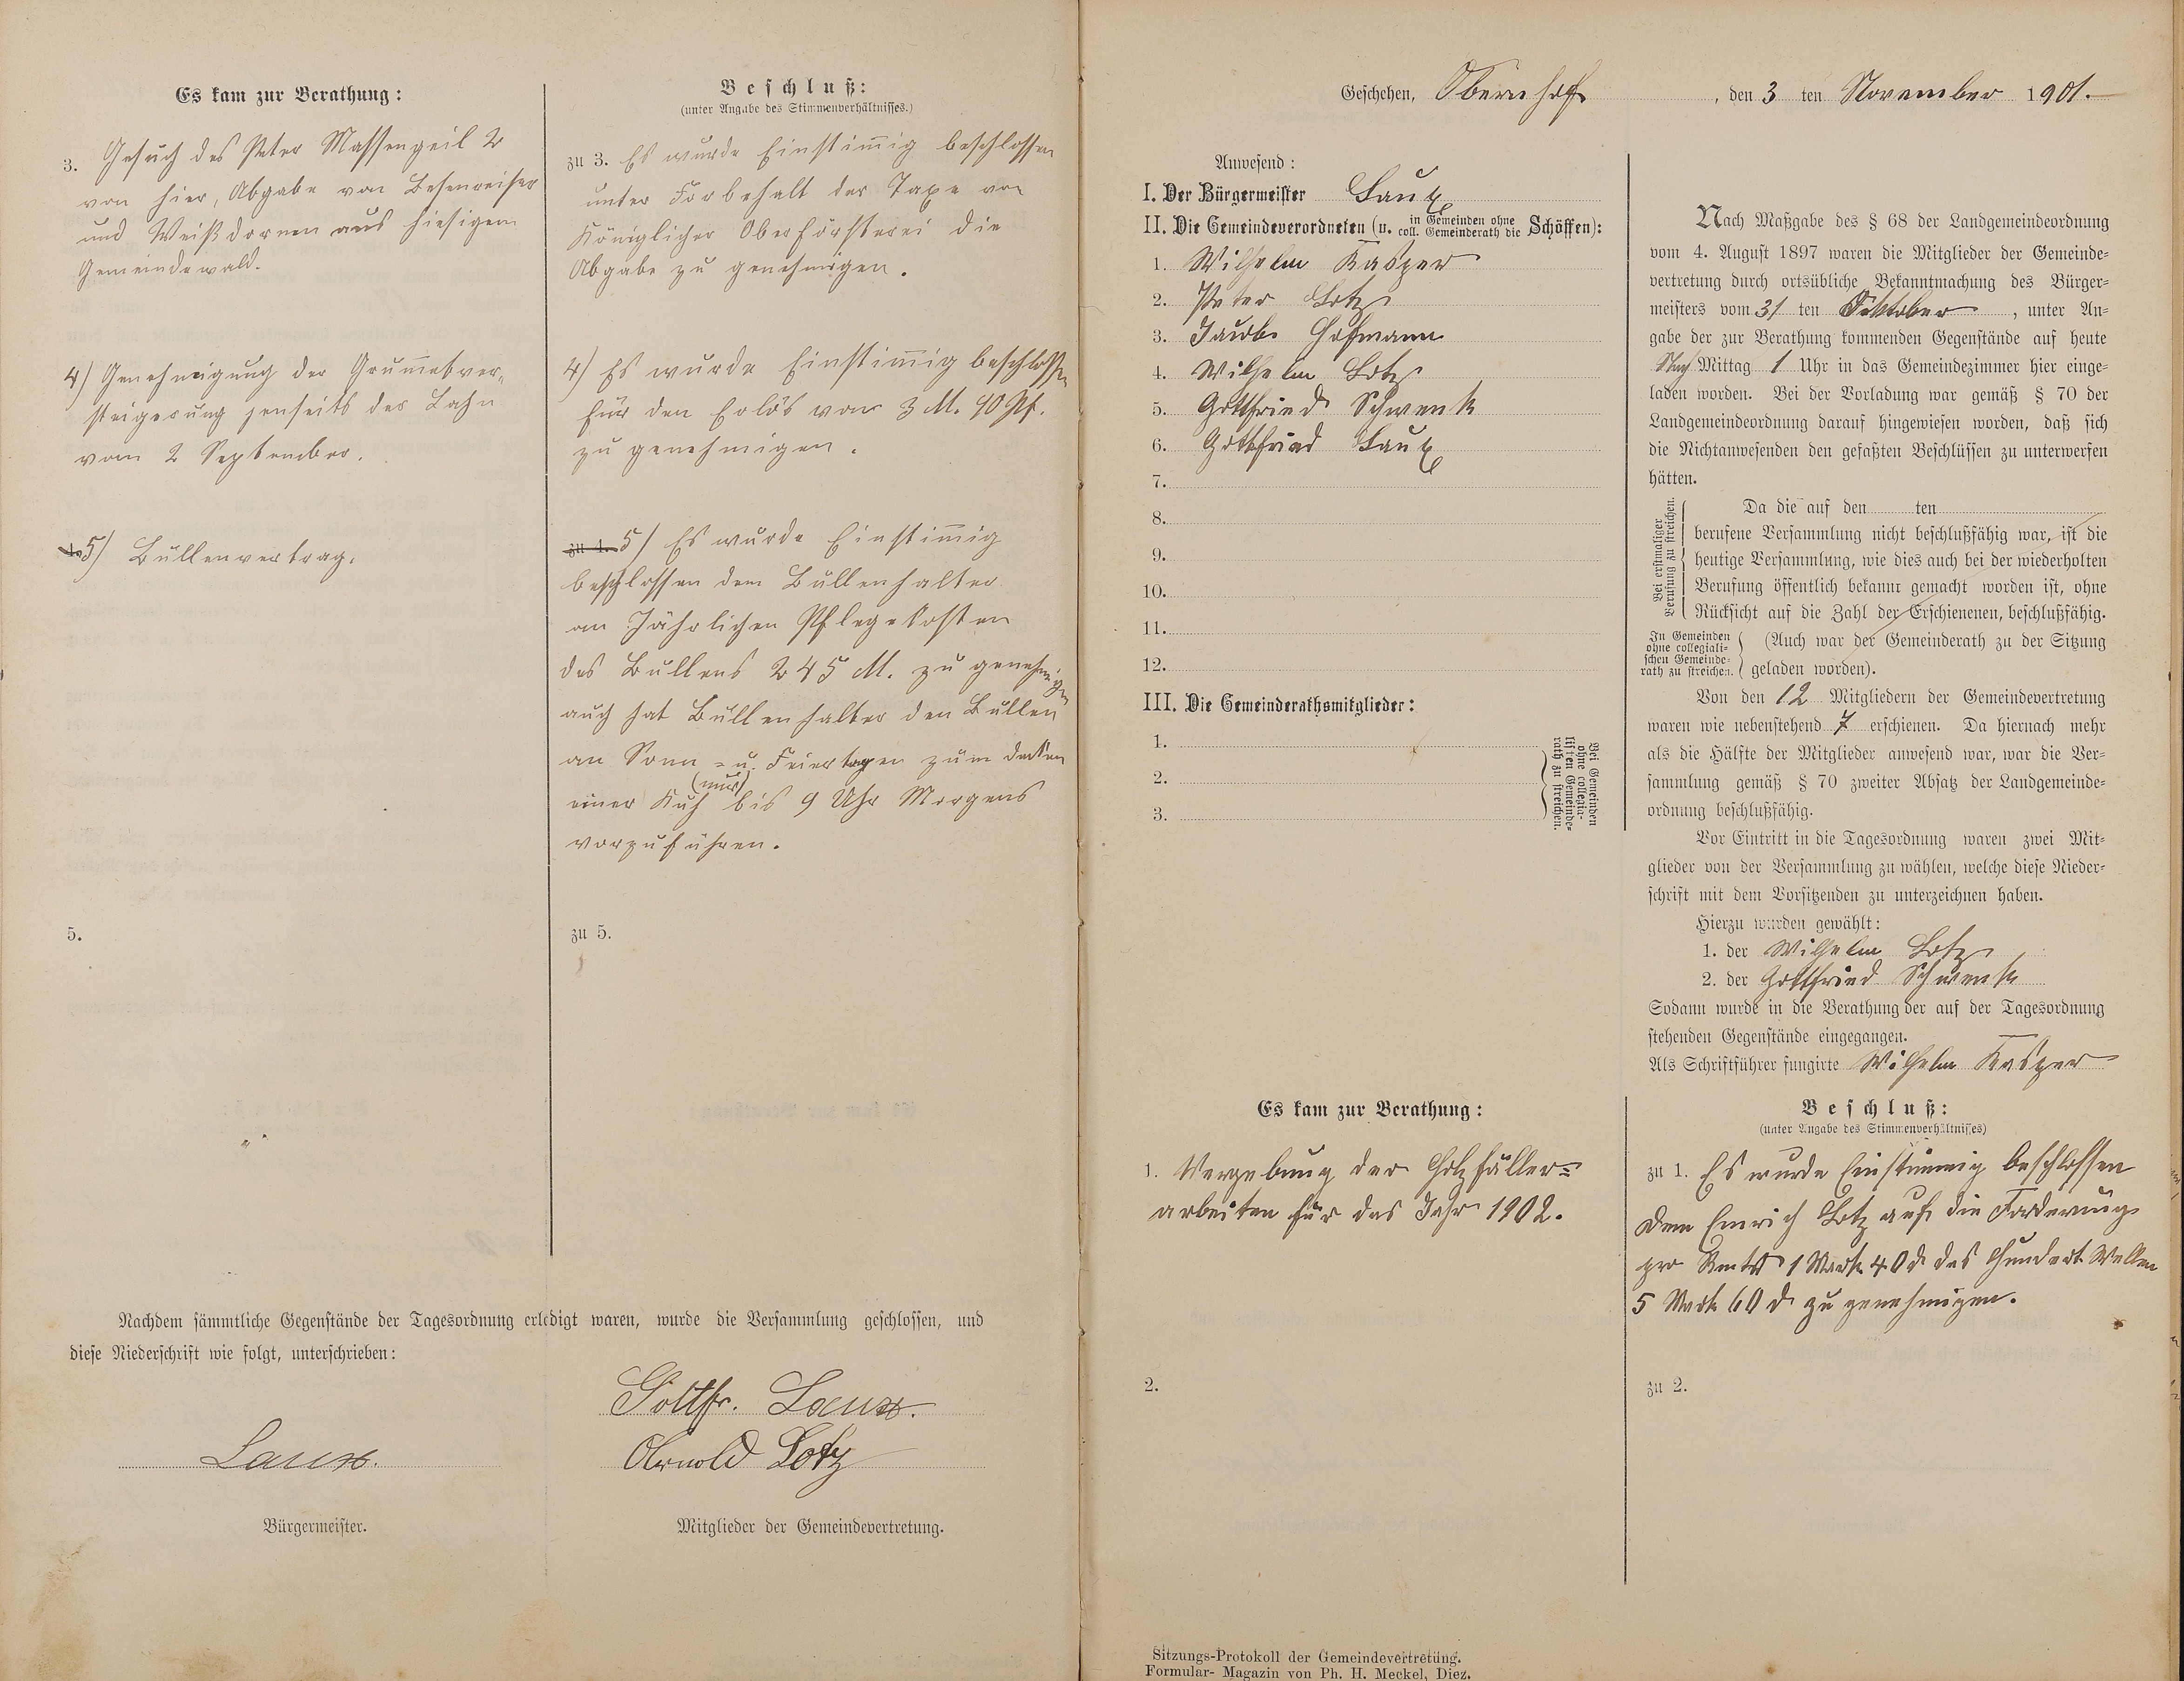 Es kam zur Berathung:
3. Gesuch des Peter Massengeil 2
von hier, Abgabe von Besenreiser
und Weißdornen aus hiesigem
Gemeindewald.
4) Genehmigung der Grum̅etver-
steigerung jenseits der Lahn
vom 2 September.
5) Bullenvertrag.
5.
Beschluß:
(unter Angabe des Stimmenverhältnisses.)
zu 3. Es wurde Einstim̅ig beschlossen
unter Vorbehalt der Taxe von
Königlicher Oberförsterei die
Abgabe zu genehmigen.
4) Es wurde Einstim̅ig beschlossen
für den Erlös von 3 M. 40 Pf.
zu genehmigen.
zu 4. 5) Es wurde Einstim̅ig
beschlossen dem Bullenhalter
an Jährlichen Pflegekosten
des Bullens 245 M. zu genehmigen
auch hat Bullenhalter den Bullen
an Sonn- u. Feiertagen zum decken
(nur)
einer Kuh bis 9 Uhr Morgens
vorzuführen.
zu 5.
Nachdem sämmtliche Gegenstände der Tagesordnung erledigt waren, wurde die Versammlung geschlossen, und
diese Niederschrift wie folgt, unterschrieben:
Gottfr. Laux.
Laux.
Arnold Lotz
Bürgermeister.
Mitglieder der Gemeindevertretung.
Geschehen, Obernhof, den 3 ten November 1901.
Anwesend:
I. Der Bürgermeister Laux
II. Die Gemeindeverordneten (u. in Gemeinden ohne coll. Gemeinderath die Schöffen):
1. Wilhelm Kasper
2. Peter Lotz
3. Jacob Hofmann
4. Wilhelm Lotz
5. Gottfried Schwenk
6. Gottfried Laux
7.
8.
9.
10.
11.
12.
III. Die Gemeinderathsmitglieder:
1.
2.
3.
Bei Gemeinden
ohne collegia-
lischen Gemeinde-
rath zu streichen.
Nach Maßgabe des § 68 der Landgemeindeordnung
vom 4. August 1897 waren die Mitglieder der Gemeinde-
vertretung durch ortsübliche Bekanntmachung des Bürger-
meisters vom 31 ten Oktober, unter An-
gabe der zur Berathung kommenden Gegenstände auf heute
Nach Mittag 1 Uhr in das Gemeindezimmer hier einge-
laden worden. Bei der Vorladung war gemäß § 70 der
Landgemeindeordnung darauf hingewiesen worden, daß sich
die Nichtanwesenden den gefaßten Beschlüssen zu unterwerfen
hätten.
Bei erstmaliger
Berufung zu streichen.
Da die auf den ten
berufene Versammlung nicht beschlußfähig war, ist die
heutige Versammlung, wie dies auch bei der wiederholten
Berufung öffentlich bekannt gemacht worden ist, ohne
Rücksicht auf die Zahl der Erschienenen, beschlußfähig.
In Gemeinden
ohne collegiali-
schen Gemeinde-
rath zu streichen.
(Auch war der Gemeinderath zu der Sitzung
geladen worden).
Von den 12 Mitgliedern der Gemeindevertretung
waren wie nebenstehend 7 erschienen. Da hiernach mehr
als die Hälfte der Mitglieder anwesend war, war die Ver-
sammlung gemäß § 70 zweiter Absatz der Landgemeinde-
ordnung beschlußfähig.
Vor Eintritt in die Tagesordnung waren zwei Mit-
glieder von der Versammlung zu wählen, welche diese Nieder-
schrift mit dem Vorsitzenden zu unterzeichnen haben.
Hierzu wurden gewählt:
1. der Wilhelm Lotz
2. der Gottfried Schwenk
Sodann wurde in die Berathung der auf der Tagesordnung
stehenden Gegenstände eingegangen.
Als Schriftführer fungirte Wilhelm Kasper
Es kam zur Berathung:
1. Vergebung der Holzfäller-
arbeiten für das Jahr 1902.
2.
Beschluß:
(unter Angabe des Stimmenverhältnisses)
zu 1. Es wurde Einstimmig beschlossen
dem Emrich Lotz auf die Forderung
pro 1 Mark 40 d das Hundert Wellen
5 Mark 60 d zu genehmigen.
zu 2.
Sitzungs-Protokoll der Gemeindevertretung.
Formular-Magazin von Ph. H. Meckel, Diez.